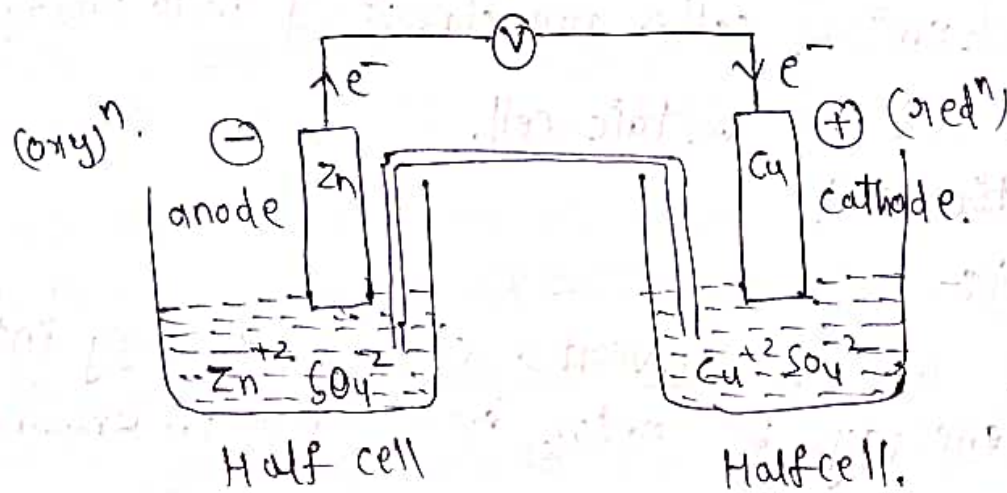 V
e⁻ e⁻
(oxy)ⁿ. ⊖ Zn Cu ⊕ (redⁿ)
anode cathode.
Zn⁺² SO₄⁻² Cu⁺² SO₄⁻²
Half cell Half cell.